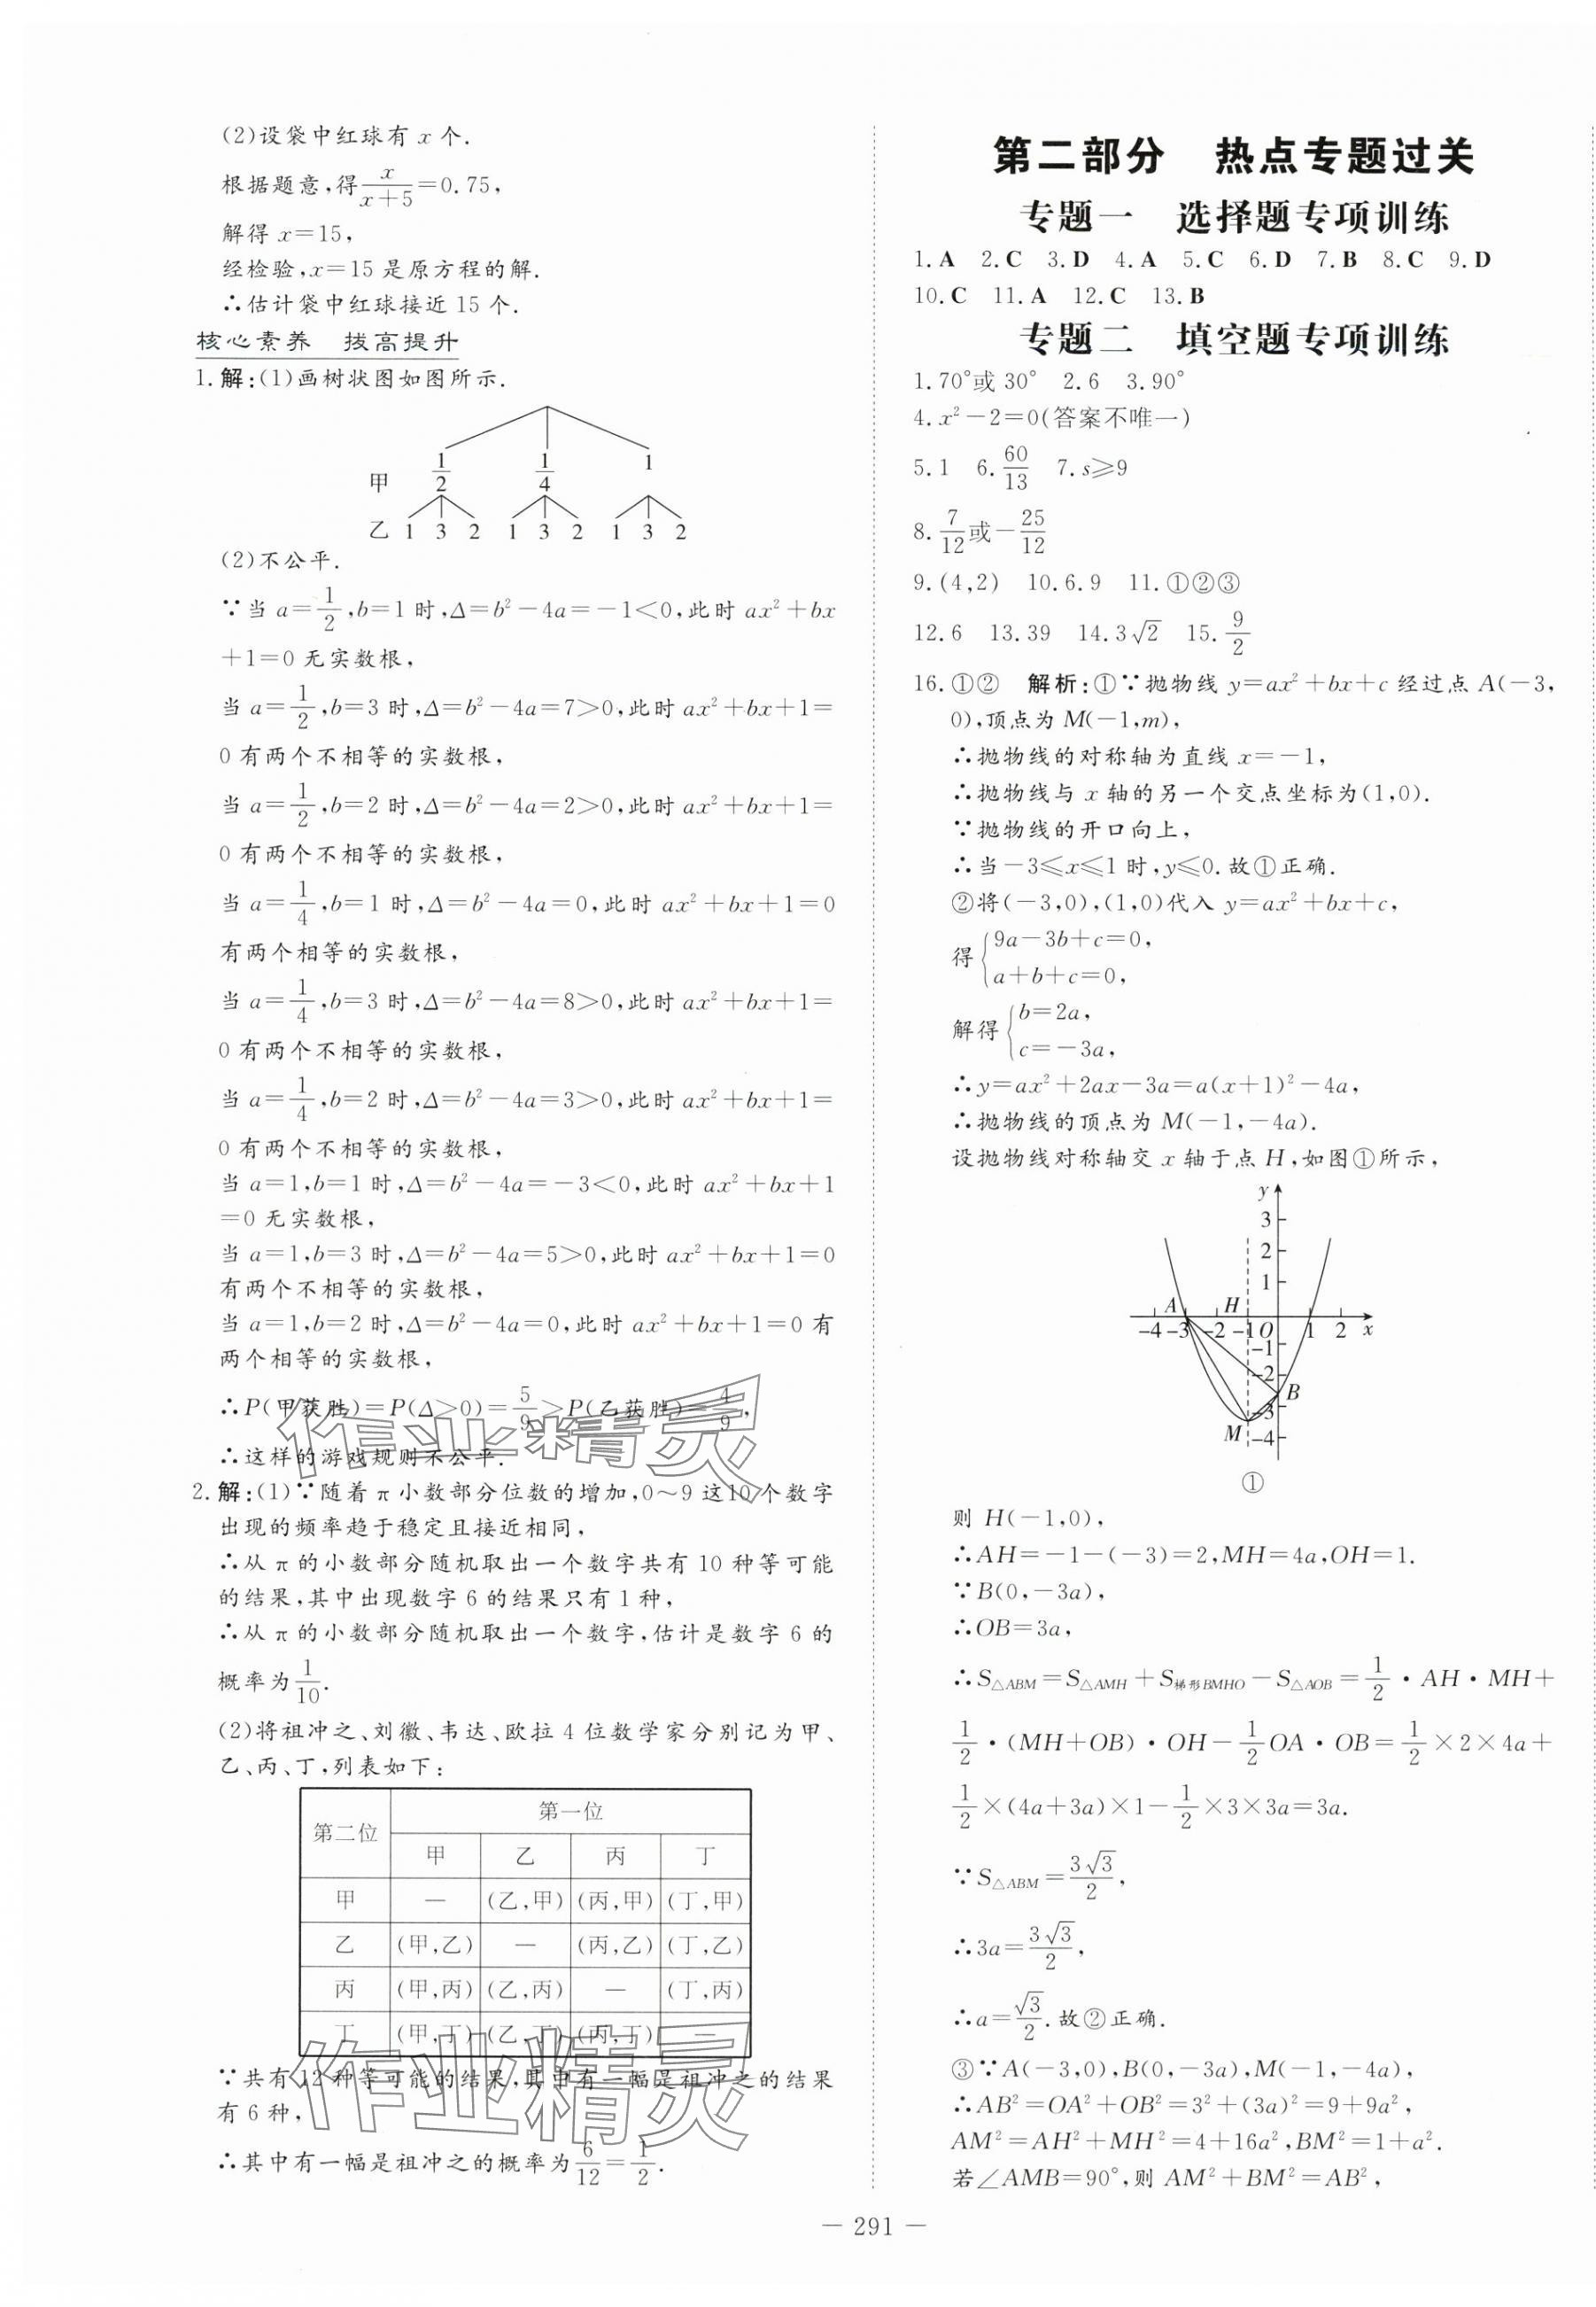 (2)设袋中红球有 x 个.
根据题意,得x/(x+5)=0.75,
解得 x=15,
经检验,x=15 是原方程的解.
∴估计袋中红球接近 15 个.
核心素养 拔高提升
1.解:(1)画树状图如图所示.
甲 1/2 1/4 1
乙 1 3 2 1 3 2 1 3 2
(2)不公平.
∵当 a=1/2,b=1 时,Δ=b²-4a=-1<0,此时 ax²+bx
+1=0 无实数根,
当 a=1/2,b=3 时,Δ=b²-4a=7>0,此时 ax²+bx+1=
0 有两个不相等的实数根,
当 a=1/2,b=2 时,Δ=b²-4a=2>0,此时 ax²+bx+1=
0 有两个不相等的实数根,
当 a=1/4,b=1 时,Δ=b²-4a=0,此时 ax²+bx+1=0
有两个相等的实数根,
当 a=1/4,b=3 时,Δ=b²-4a=8>0,此时 ax²+bx+1=
0 有两个不相等的实数根,
当 a=1/4,b=2 时,Δ=b²-4a=3>0,此时 ax²+bx+1=
0 有两个不相等的实数根,
当 a=1,b=1 时,Δ=b²-4a=-3<0,此时 ax²+bx+1
=0 无实数根,
当 a=1,b=3 时,Δ=b²-4a=5>0,此时 ax²+bx+1=0
有两个不相等的实数根,
当 a=1,b=2 时,Δ=b²-4a=0,此时 ax²+bx+1=0 有
两个相等的实数根,
∴P(甲获胜)=P(Δ>0)=5/9>P(乙获胜)=4/9,
∴这样的游戏规则不公平.
作业精灵
2.解:(1)∵随着 π 小数部分位数的增加,0~9 这10个数字
出现的频率趋于稳定且接近相同,
∴从 π 的小数部分随机取出一个数字共有 10 种等可能
的结果,其中出现数字 6 的结果只有 1 种,
∴从 π 的小数部分随机取出一个数字,估计是数字 6 的
概率为1/10.
(2)将祖冲之、刘徽、韦达、欧拉 4 位数学家分别记为甲、
乙、丙、丁,列表如下:
第二位 第一位
甲 乙 丙 丁
甲 — (乙,甲) (丙,甲) (丁,甲)
乙 (甲,乙) — (丙,乙) (丁,乙)
丙 (甲,丙) (乙,丙) — (丁,丙)
丁 (甲,丁) (乙,丁) (丙,丁) —
作业精灵
∵共有 12 种等可能的结果,其中有一幅是祖冲之的结果
有 6 种,
∴其中有一幅是祖冲之的概率为6/12=1/2.
第二部分 热点专题过关
专题一 选择题专项训练
1.A 2.C 3.D 4.A 5.C 6.D 7.B 8.C 9.D
10.C 11.A 12.C 13.B
专题二 填空题专项训练
1.70°或 30° 2.6 3.90°
4.x²-2=0(答案不唯一)
5.1 6.60/13 7.s≥9
8.7/12或-25/12
9.(4,2) 10.6.9 11.①②③
12.6 13.39 14.3√2 15.9/2
16.①② 解析:①∵抛物线 y=ax²+bx+c 经过点 A(-3,
0),顶点为 M(-1,m),
∴抛物线的对称轴为直线 x=-1,
∴抛物线与 x 轴的另一个交点坐标为(1,0).
∵抛物线的开口向上,
∴当-3≤x≤1 时,y≤0.故①正确.
②将(-3,0),(1,0)代入 y=ax²+bx+c,
得{9a-3b+c=0,
a+b+c=0,
解得{b=2a,
c=-3a,
∴y=ax²+2ax-3a=a(x+1)²-4a,
∴抛物线的顶点为 M(-1,-4a).
设抛物线对称轴交 x 轴于点 H,如图①所示,
y
3
2
1
A H
-4 -3 -2 -1 O 1 2 x
-1
-2
B
-3
M -4
①
则 H(-1,0),
∴AH=-1-(-3)=2,MH=4a,OH=1.
∵B(0,-3a),
∴OB=3a,
∴S△ABM=S△AMH+S梯形BMHO-S△AOB=1/2·AH·MH+
1/2·(MH+OB)·OH-1/2OA·OB=1/2×2×4a+
1/2×(4a+3a)×1-1/2×3×3a=3a.
∵S△ABM=3√3/2,
∴3a=3√3/2,
∴a=√3/2.故②正确.
③∵A(-3,0),B(0,-3a),M(-1,-4a),
∴AB²=OA²+OB²=3²+(3a)²=9+9a²,
AM²=AH²+MH²=4+16a²,BM²=1+a².
若∠AMB=90°,则 AM²+BM²=AB²,
— 291 —